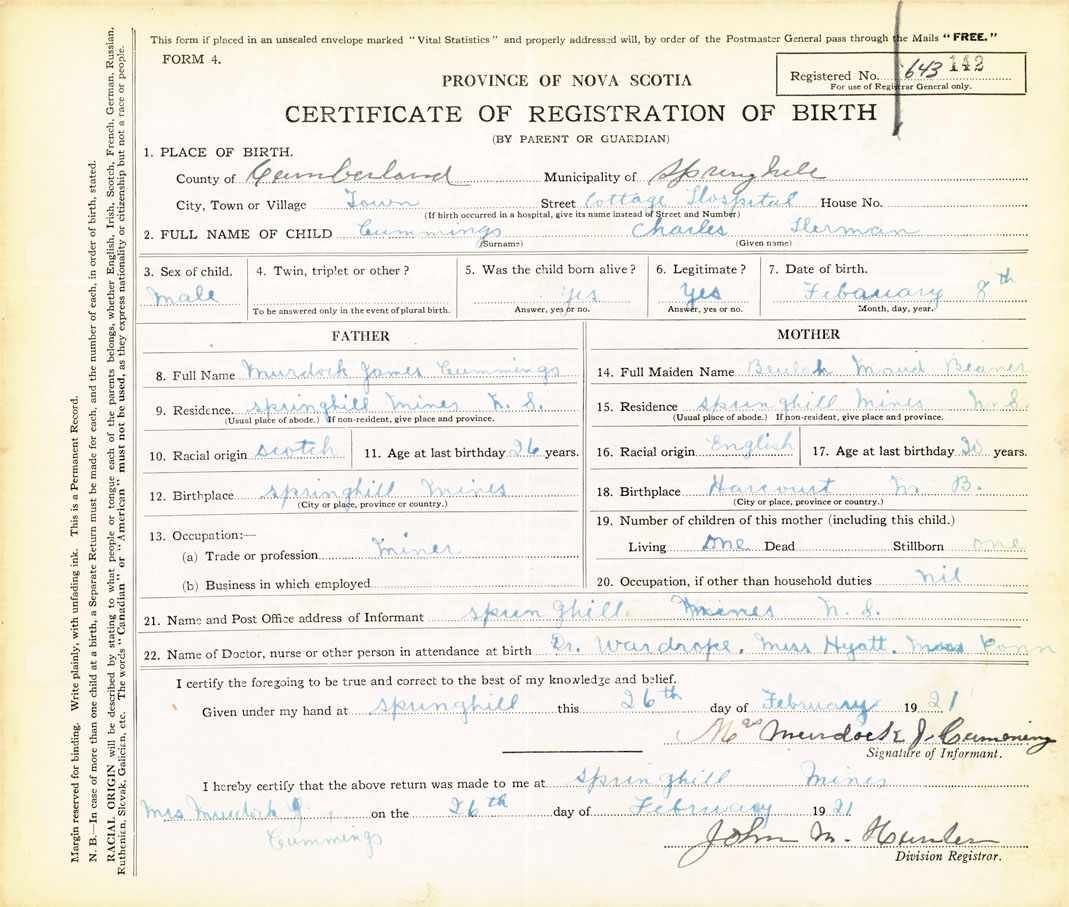 This form if placed in an unsealed envelope marked "Vital Statistics" and properly addressed will, by order of the Postmaster General pass through the Mails "FREE."
FORM 4.
Registered No. 643 142
For use of Registrar General only.
PROVINCE OF NOVA SCOTIA
CERTIFICATE OF REGISTRATION OF BIRTH
(BY PARENT OR GUARDIAN)
1. PLACE OF BIRTH.
County of Cumberland Municipality of Springhill
City, Town or Village Town Street Cottage Hospital House No.
(If birth occurred in a hospital, give its name instead of Street and Number)
2. FULL NAME OF CHILD Cummings Charles Herman
(Surname) (Given name)
3. Sex of child. 4. Twin, triplet or other? 5. Was the child born alive? 6. Legitimate? 7. Date of birth.
Male Yes Yes Febauary 8th
To be answered only in the event of plural birth. Answer, yes or no. Answer, yes or no. Month, day, year.
FATHER
8. Full Name Murdock James Cummings
9. Residence. Springhill Mines N. S.
(Usual place of abode.) If non-resident, give place and province.
10. Racial origin Scotch 11. Age at last birthday 26 years.
12. Birthplace Springhill Mines
(City or place, province or country.)
13. Occupation:—
(a) Trade or profession Miner
(b) Business in which employed
MOTHER
14. Full Maiden Name Beulah Maud
15. Residence Springhill Mines N. S.
(Usual place of abode.) If non-resident, give place and province.
16. Racial origin English 17. Age at last birthday 20 years.
18. Birthplace Harcourt N. B.
(City or place, province or country.)
19. Number of children of this mother (including this child.)
Living One Dead Stillborn one
20. Occupation, if other than household duties nil
21. Name and Post Office address of Informant Springhill Mines N. S.
22. Name of Doctor, nurse or other person in attendance at birth Dr. Wardrope. Miss Hyatt. Miss
I certify the foregoing to be true and correct to the best of my knowledge and belief.
Given under my hand at Springhill this 26th day of February 1921
Mrs Murdock J. Cummings
Signature of Informant.
I hereby certify that the above return was made to me at Springhill Mines
Mrs Murdock J. on the 26th day of February 1921
Cummings
John M. Hunter
Division Registrar.
Margin reserved for binding. Write plainly, with unfading ink. This is a Permanent Record.
N. B.—In case of more than one child at a birth, a Separate Return must be made for each, and the number of each, in order of birth, stated.
RACIAL ORIGIN will be described by stating to what people or tongue each of the parents belongs, whether English, Irish, Scotch, French, German, Russian,
Ruthenian, Slovak, Galician, etc. The words "Canadian" or "American" must not be used, as they express nationality or citizenship but not a race or people.